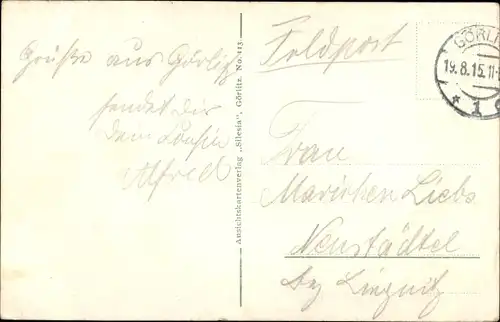 Grüße aus Görlitz
sendet dir
dein Cousin
Alfred
Ansichtskartenverlag „Silesia", Görlitz. No. 413
Feldpost
GÖRLI
19.8.15.11-
* 1 c
Frau
Mariechen Liebs
Neustädtel
bey Liegnitz